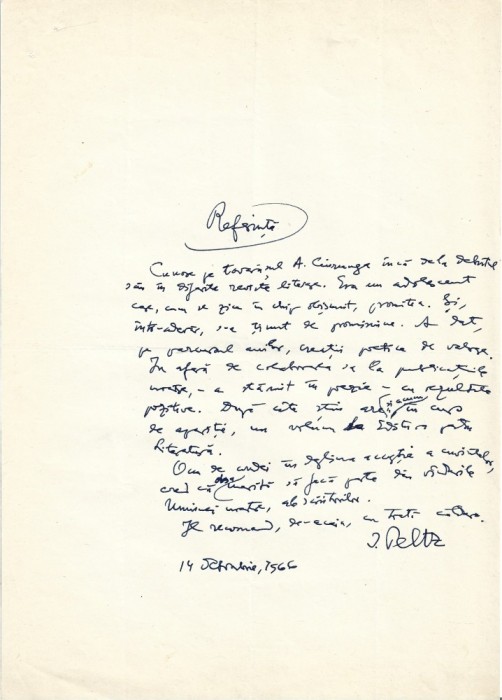 Referință
Cunosc pe tovarășul A. Ciurunga încă de la debutul
său în diferite reviste literare. Era un adolescent
care, cum se zice în chip obișnuit, promitea. Și,
într-adevăr, s-a ținut de promisiune. A dat,
pe parcursul anilor, creații poetice de valoare.
În afară de colaborarea sa la publicațiile
noastre, - a stăruit în poezie - cu rezultate
pozitive. După câte știu are și acum în curs
de apariție, un volum la Editura pentru
Literatură.
Om de condei în deplina accepție a cuvântului,
cred că merită să facă parte din rândurile
Uniunii noastre, ale scriitorilor.
Îl recomand, de-aceia, cu toată căldura.
I. Peltz
14 Octombrie, 1966